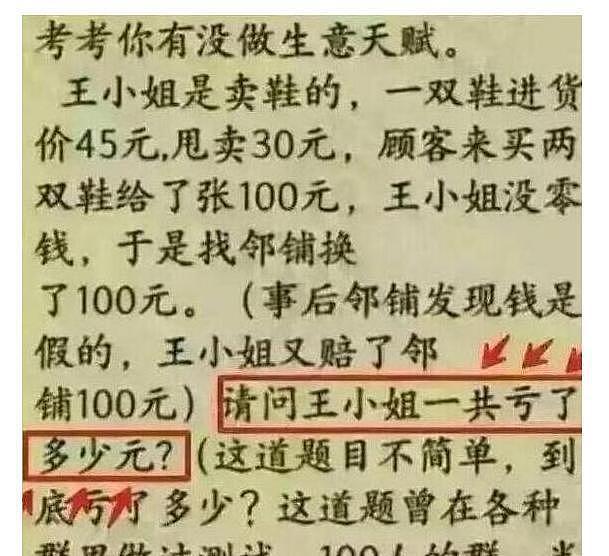 考考你有没做生意天赋。
王小姐是卖鞋的，一双鞋进货
价45元,甩卖30元，顾客来买两
双鞋给了张100元，王小姐没零
钱，于是找邻铺换
了100元。（事后邻铺发现钱是
假的，王小姐又赔了邻
铺100元）请问王小姐一共亏了
多少元?（这道题目不简单，到
底亏了多少？这道题曾在各种